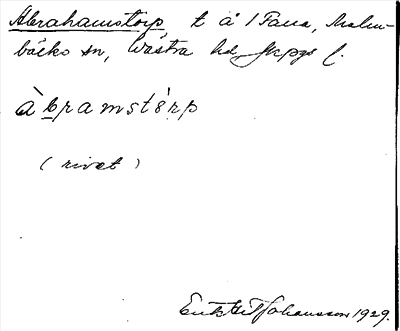 Abrahamstorp t å 1 Fana, Malm-
bäcks sn, Västra hd, Jkpgs l.
àbramstàrp
(rivet)
Johansson 1929.